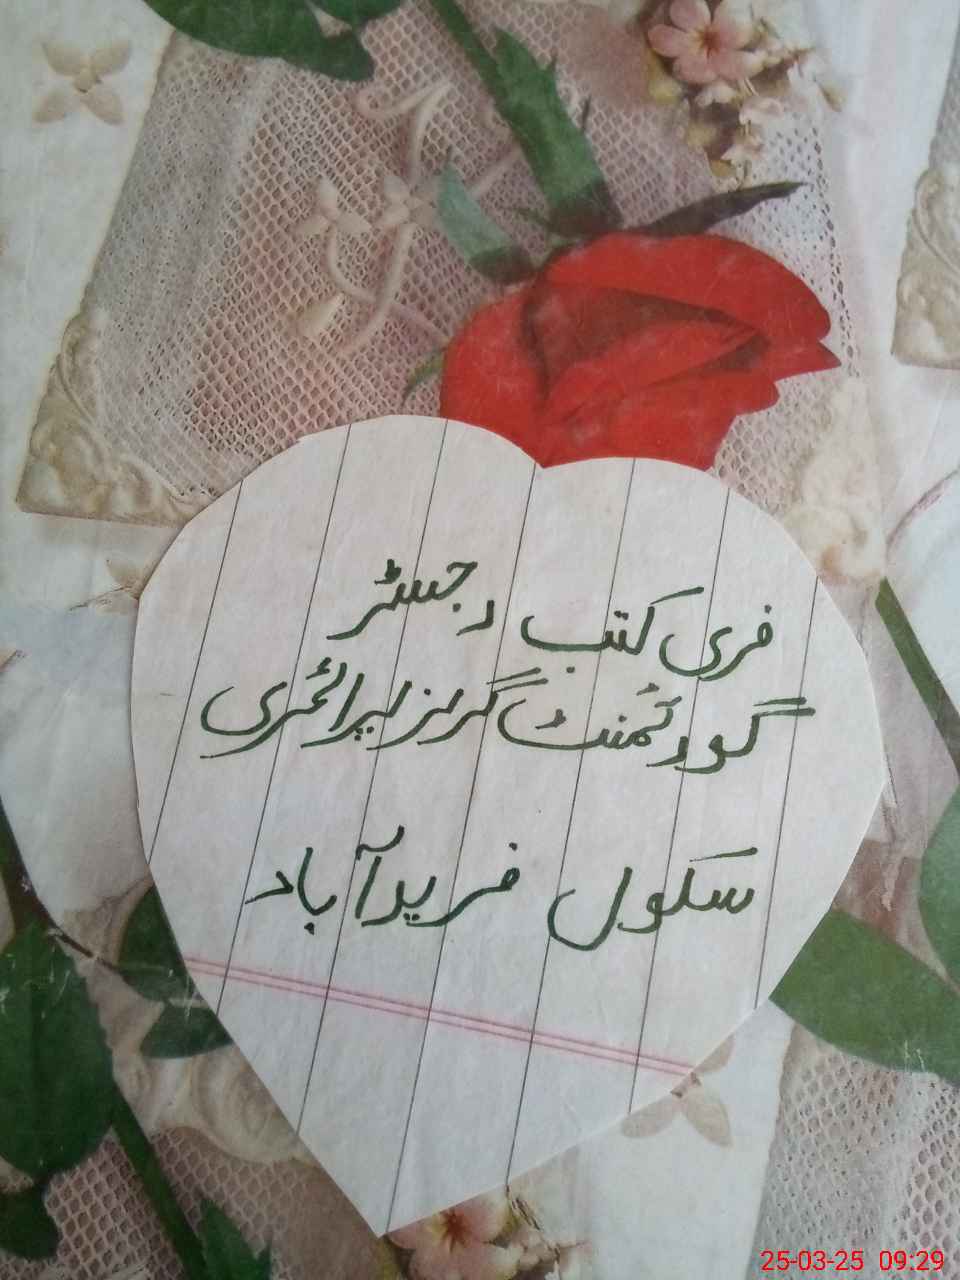 فری کتب رجسٹر
گورئمنٹ گرلز پرائمری
سکول فریدآباد
25-03-25 09:29